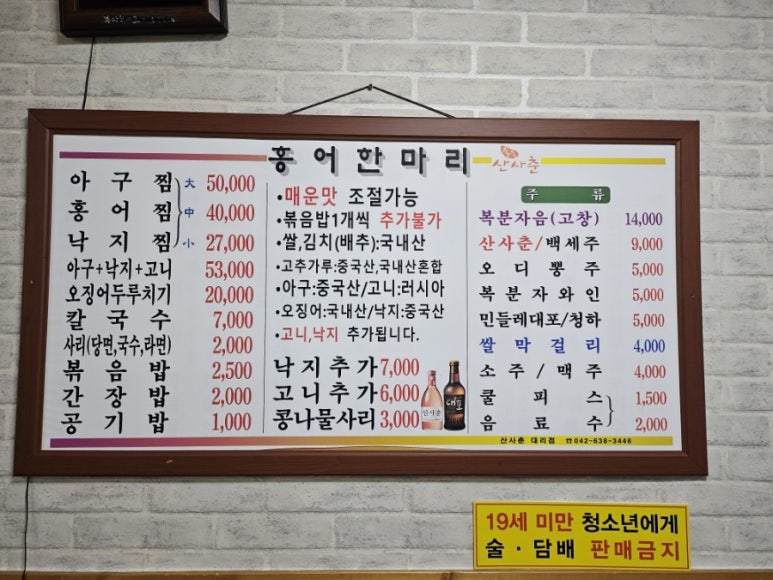 홍어한마리
산사춘
아구찜 大 50,000
홍어찜 中 40,000
낙지찜 小 27,000
아구+낙지+고니 53,000
오징어두루치기 20,000
칼국수 7,000
사리(당면,국수,라면) 2,000
볶음밥 2,500
간장밥 2,000
공기밥 1,000
•매운맛 조절가능
•볶음밥1개씩 추가불가
•쌀,김치(배추):국내산
•고추가루:중국산,국내산혼합
•아구:중국산/고니:러시아
•오징어:국내산/낙지:중국산
•고니,낙지 추가됩니다.
낙지추가 7,000
고니추가 6,000
콩나물사리 3,000
산사춘
대포
주류
복분자음(고창) 14,000
산사춘/백세주 9,000
오디뽕주 5,000
복분자와인 5,000
민들레대포/청하 5,000
쌀막걸리 4,000
소주/맥주 4,000
쿨피스 1,500
음료수 2,000
산사춘 대리점 ☎042-638-3446
19세 미만 청소년에게
술·담배 판매금지